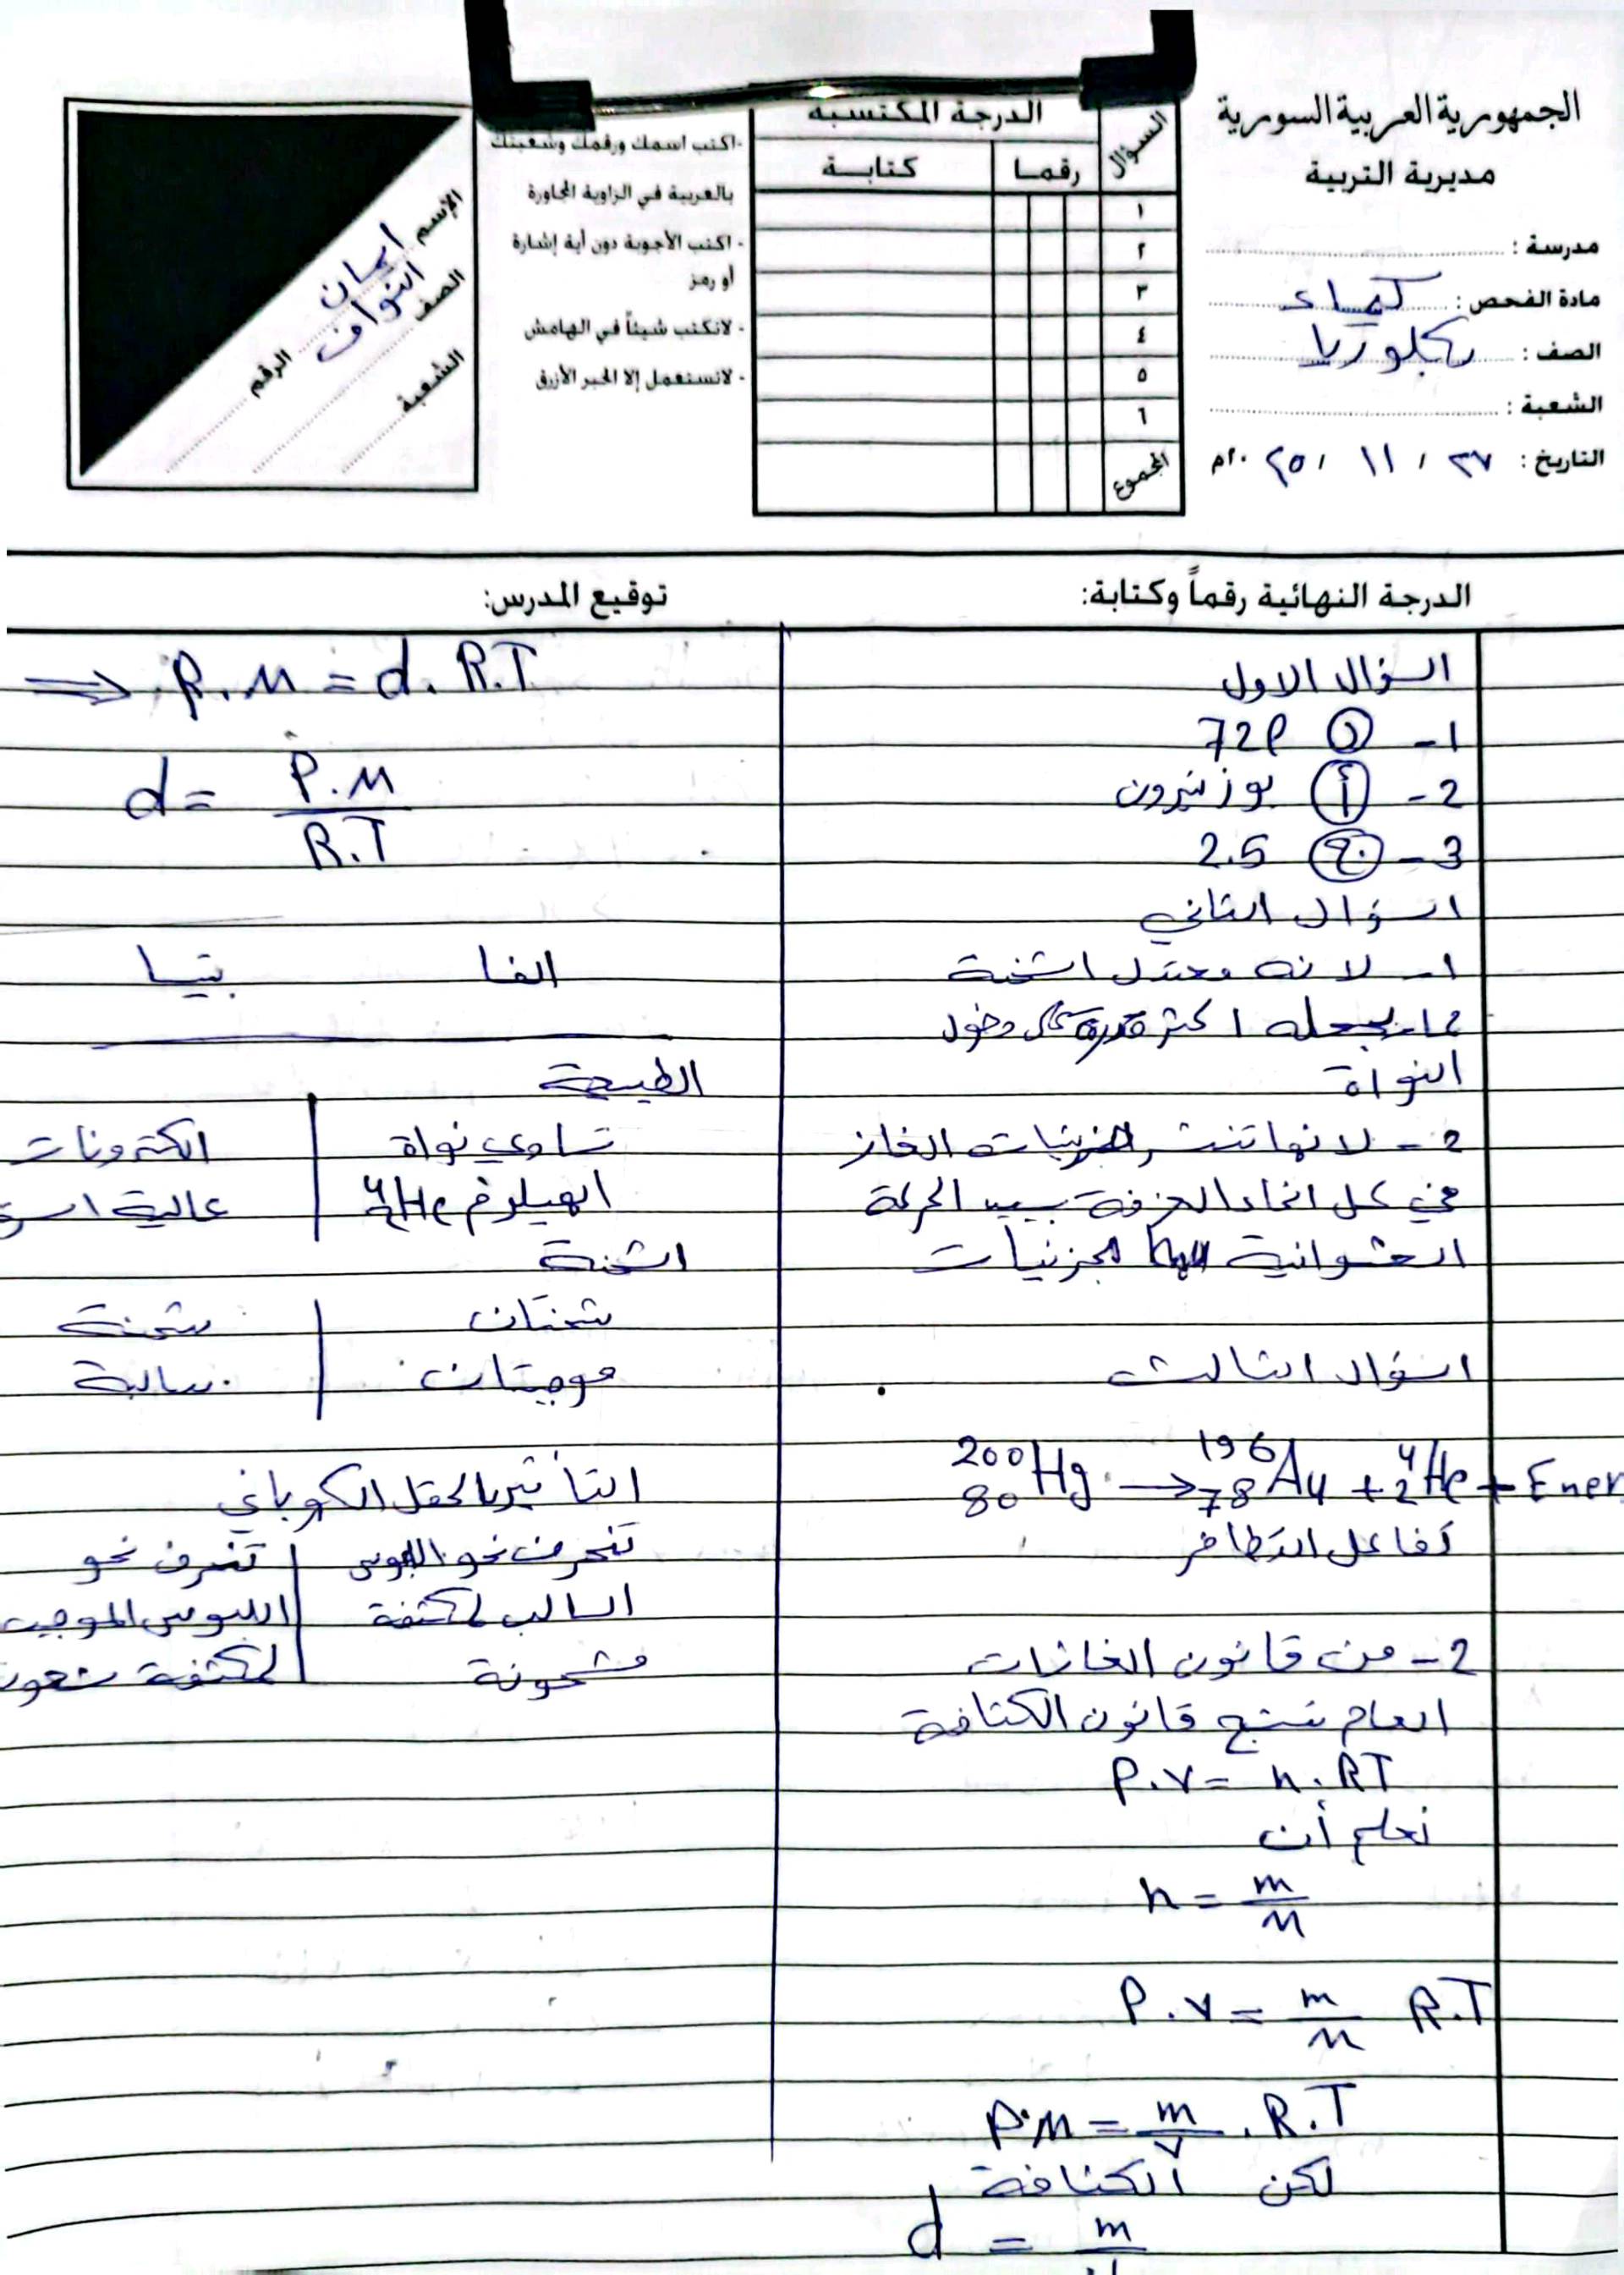 الجمهورية العربية السورية
مديرية التربية
مدرسة :
مادة الفحص : كيمياء
الصف : بكلوريا
الشعبة :
التاريخ : ٢٧ / ١١ / ٢٠٢٥م
السؤال
الدرجة المكتسبة
رقما
كتابة
١
٢
٣
٤
٥
٦
المجموع
-اكتب اسمك ورقمك وشعبتك
بالعربية في الزاوية المجاورة
- اكتب الأجوبة دون أية إشارة
أو رمز
- لاتكتب شيئاً في الهامش
- لاتستعمل إلا الحبر الأزرق
الإسم ايمان
النواف
الصف
الرقم
الشعبة
الدرجة النهائية رقماً وكتابة:
توقيع المدرس:
السؤال الاول
1-
2- أ بوزيترون
3- ج 2.5
السؤال الثاني
1- لانه معتدل الشحنة
يجعله اكثر قدرة على دخول
النواة
2- لانها تنتشر جزيئات الغاز
في كل انحاء الغرفة بسبب الحركة
العشوائية لجزيئات
السؤال الثالث
²⁰⁰₈₀Hg → ¹⁹⁶₇₈Au + ⁴₂He + Ener
تفاعل التطافر
2- من قانون الغازات
العام نستنتج قانون الكثافة
P.V = n.RT
نعلم أن
n = m/M
P.V = m/M R.T
P.M = m/V . R.T
لكن الكثافة
d = m
⇒ P.M = d.R.T
d = P.M / R.T
الفا بيتا
الطبيعة
تساوي نواة | الكترونات
الهيليوم ⁴₂He | عالية
الشحنة
شحنتان | شحنة
موجبتان | سالبة
التأثير بالحقل الكهربائي
تنحرف نحو اللبوس | تنحرف نحو
السالب لمكثفة | اللبوس الموجب
مشحونة | لمكثفة